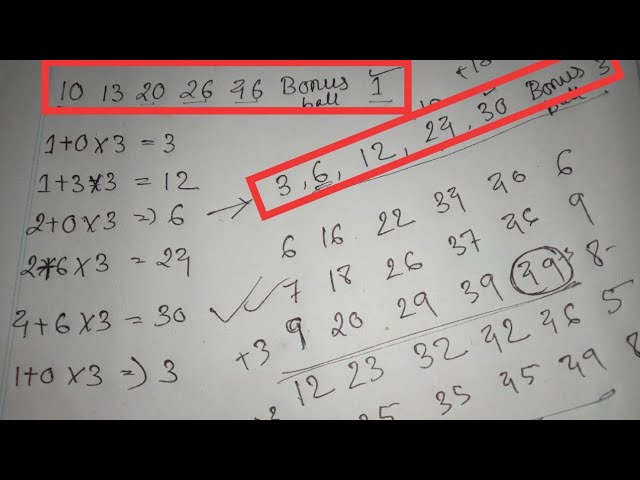 10 13 20 26 46 Bonus ball 1
1+0×3 = 3
1+3×3 = 12
2+0×3 =) 6
2+6×3 = 24
4+6×3 = 30
1+0×3 =) 3
+10
3, 6, 12, 24, 30 Bonus ball 3
6 16 22 34 40 6
7 18 26 37 46 9
+3 9 20 29 39 49 8
12 23 32 42 46 5
35 45 49 8